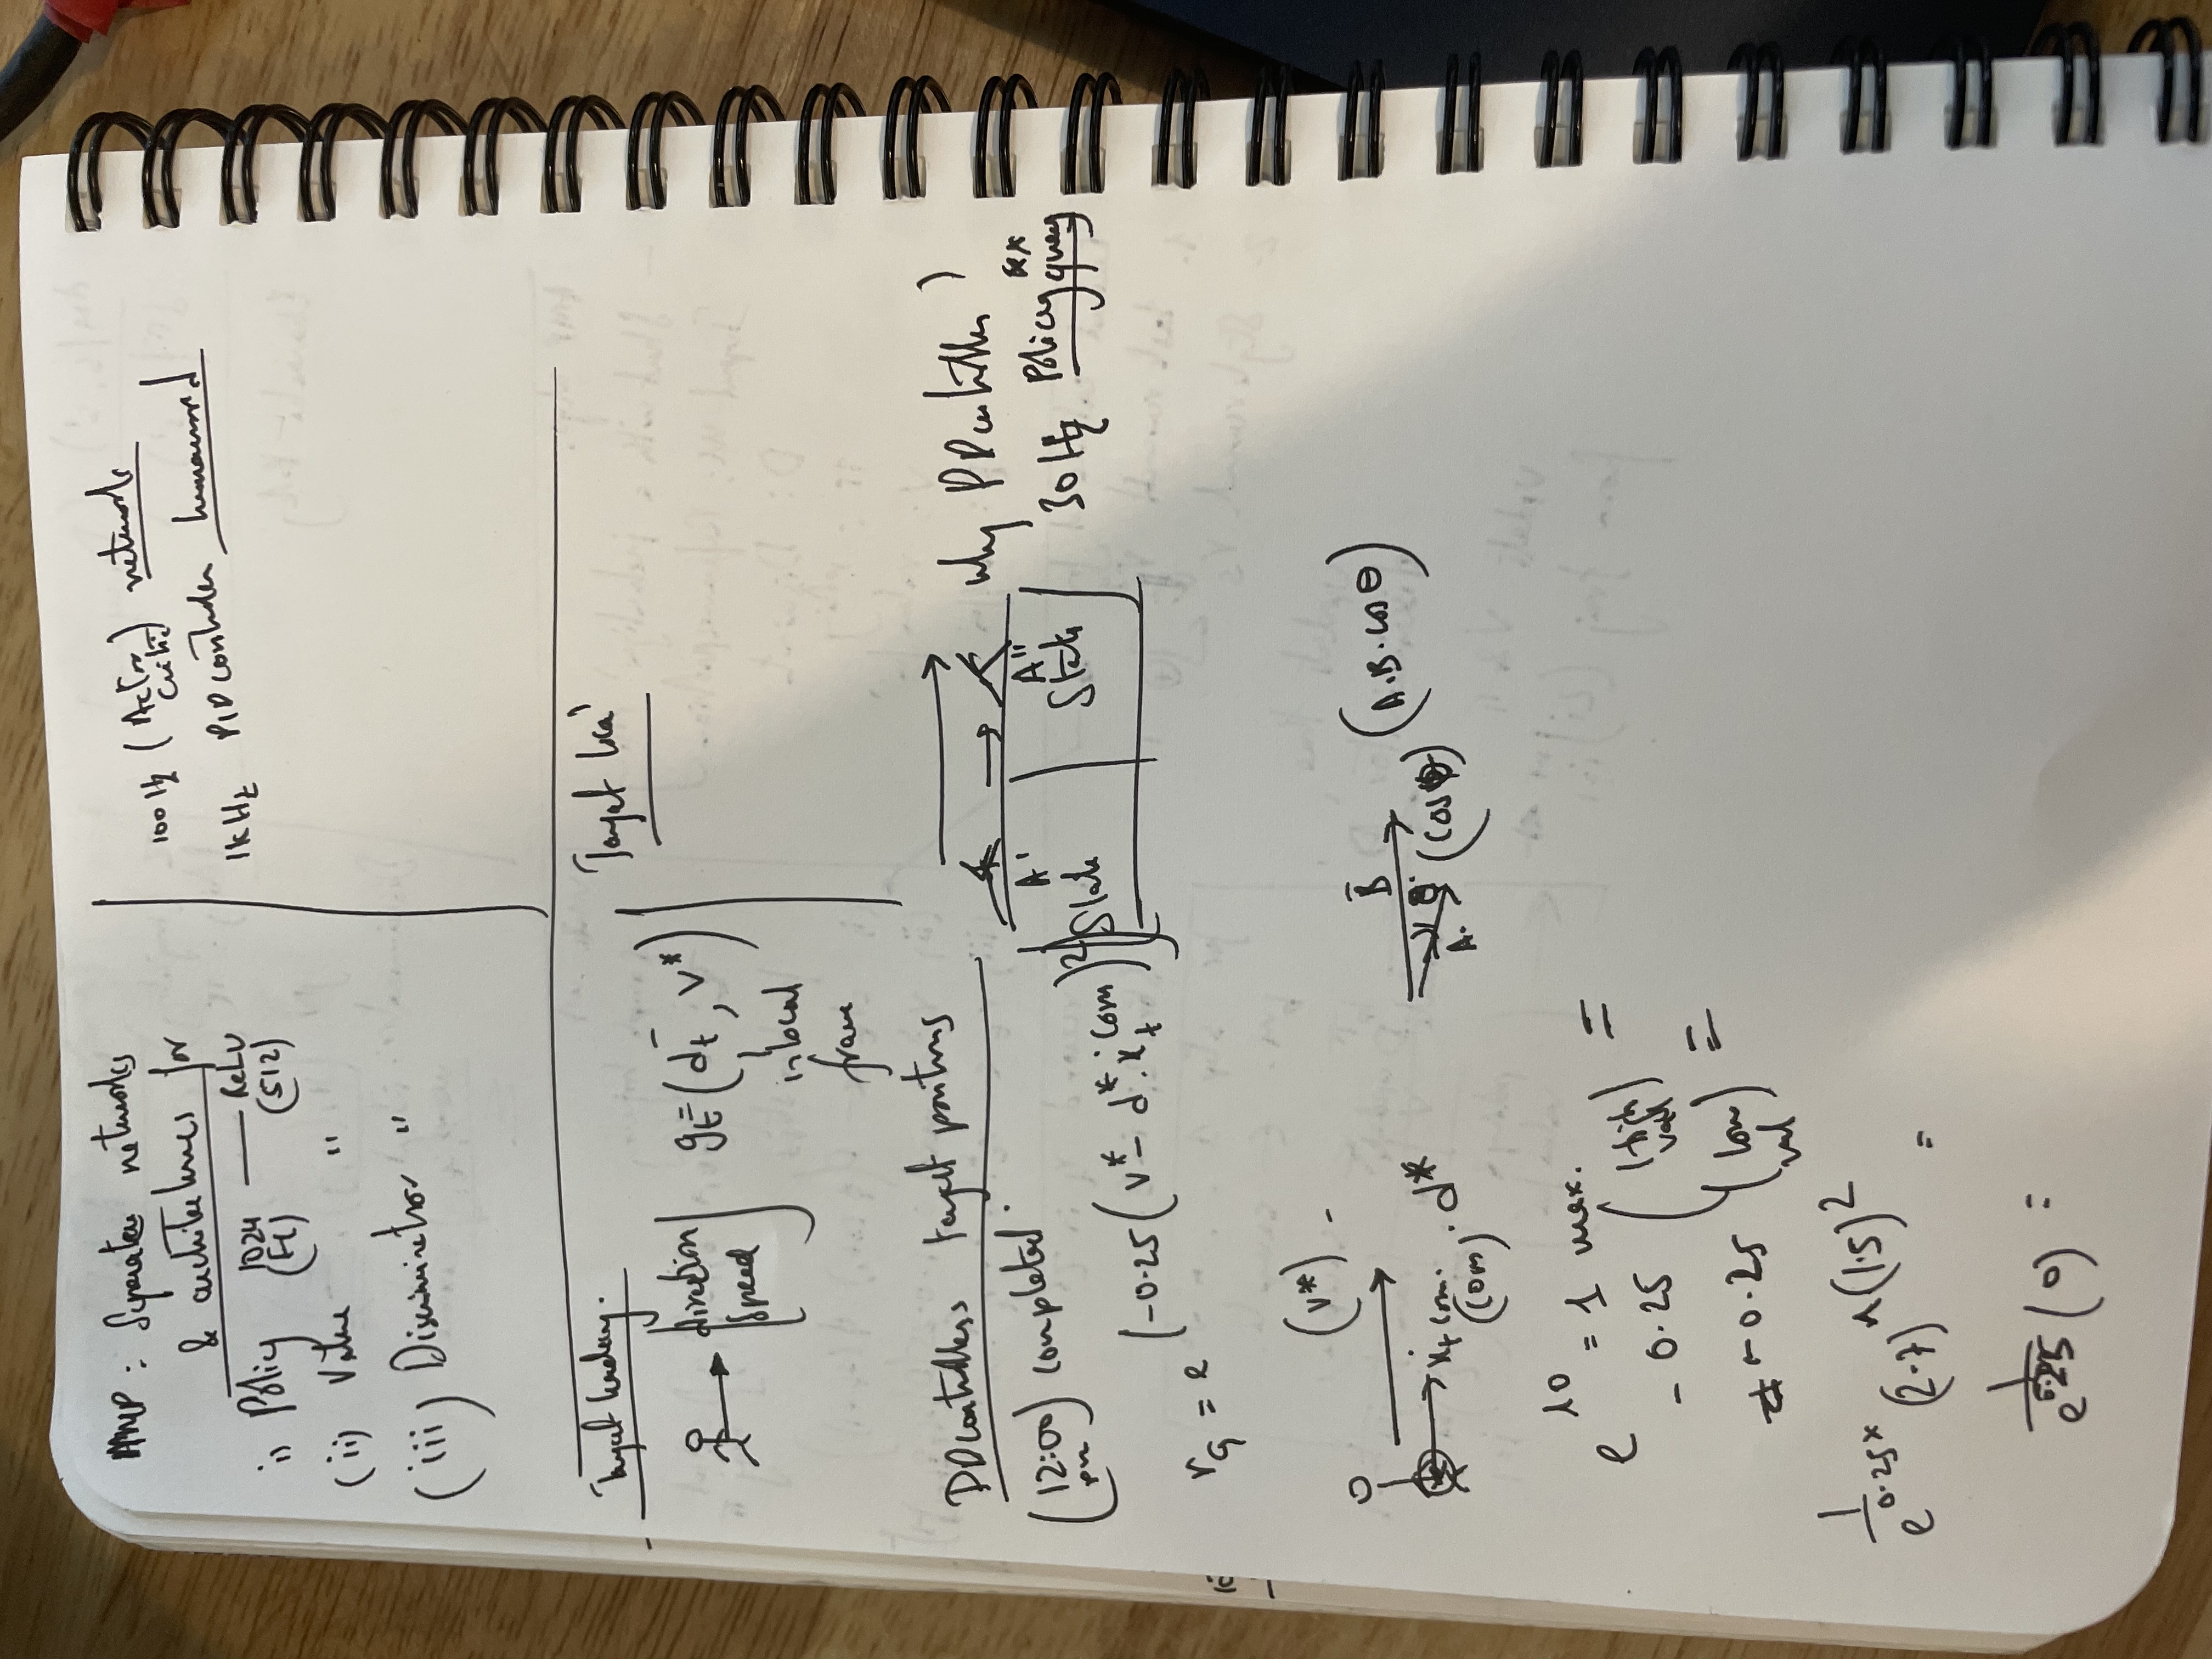 AMP : Separate networks
& architectures for
i) Policy 1024 (FC) — ReLU (512)
(ii) Value "
(iii) Discriminator "
100 Hz (Actor Critic) network
1kHz PID controller humanoid
Target heading.
direction
speed
g_t = (d_t, v*)
in local
frame
Target loca'
PD controllers target positions
(12:00 pm) completed
A' State
A" State
why PD controller ?
30 Hz Policy query
r_G = e (-0.25 (v* - d* . ẋ_t^com)²)
(v*) -
ẋ_t com.
(com) . d*
B
A. θ (cos θ) (A.B.cos θ)
e^10 = 1 max.
- 0.25 (high val) =
- 0.25 (low val) =
1 / e^0.25 x (2.7)^(1.5)² =
1 / e^0.25 (0) =